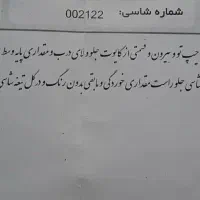 شماره شاسی: 002122
چپ تو و بیرون و قسمتی از کاپوت جلو و لای درب و مقداری پایه وسط
شاسی جلو راست مقداری خوردگی و مابقی بدون رنگ و در کل تیغه شاسی